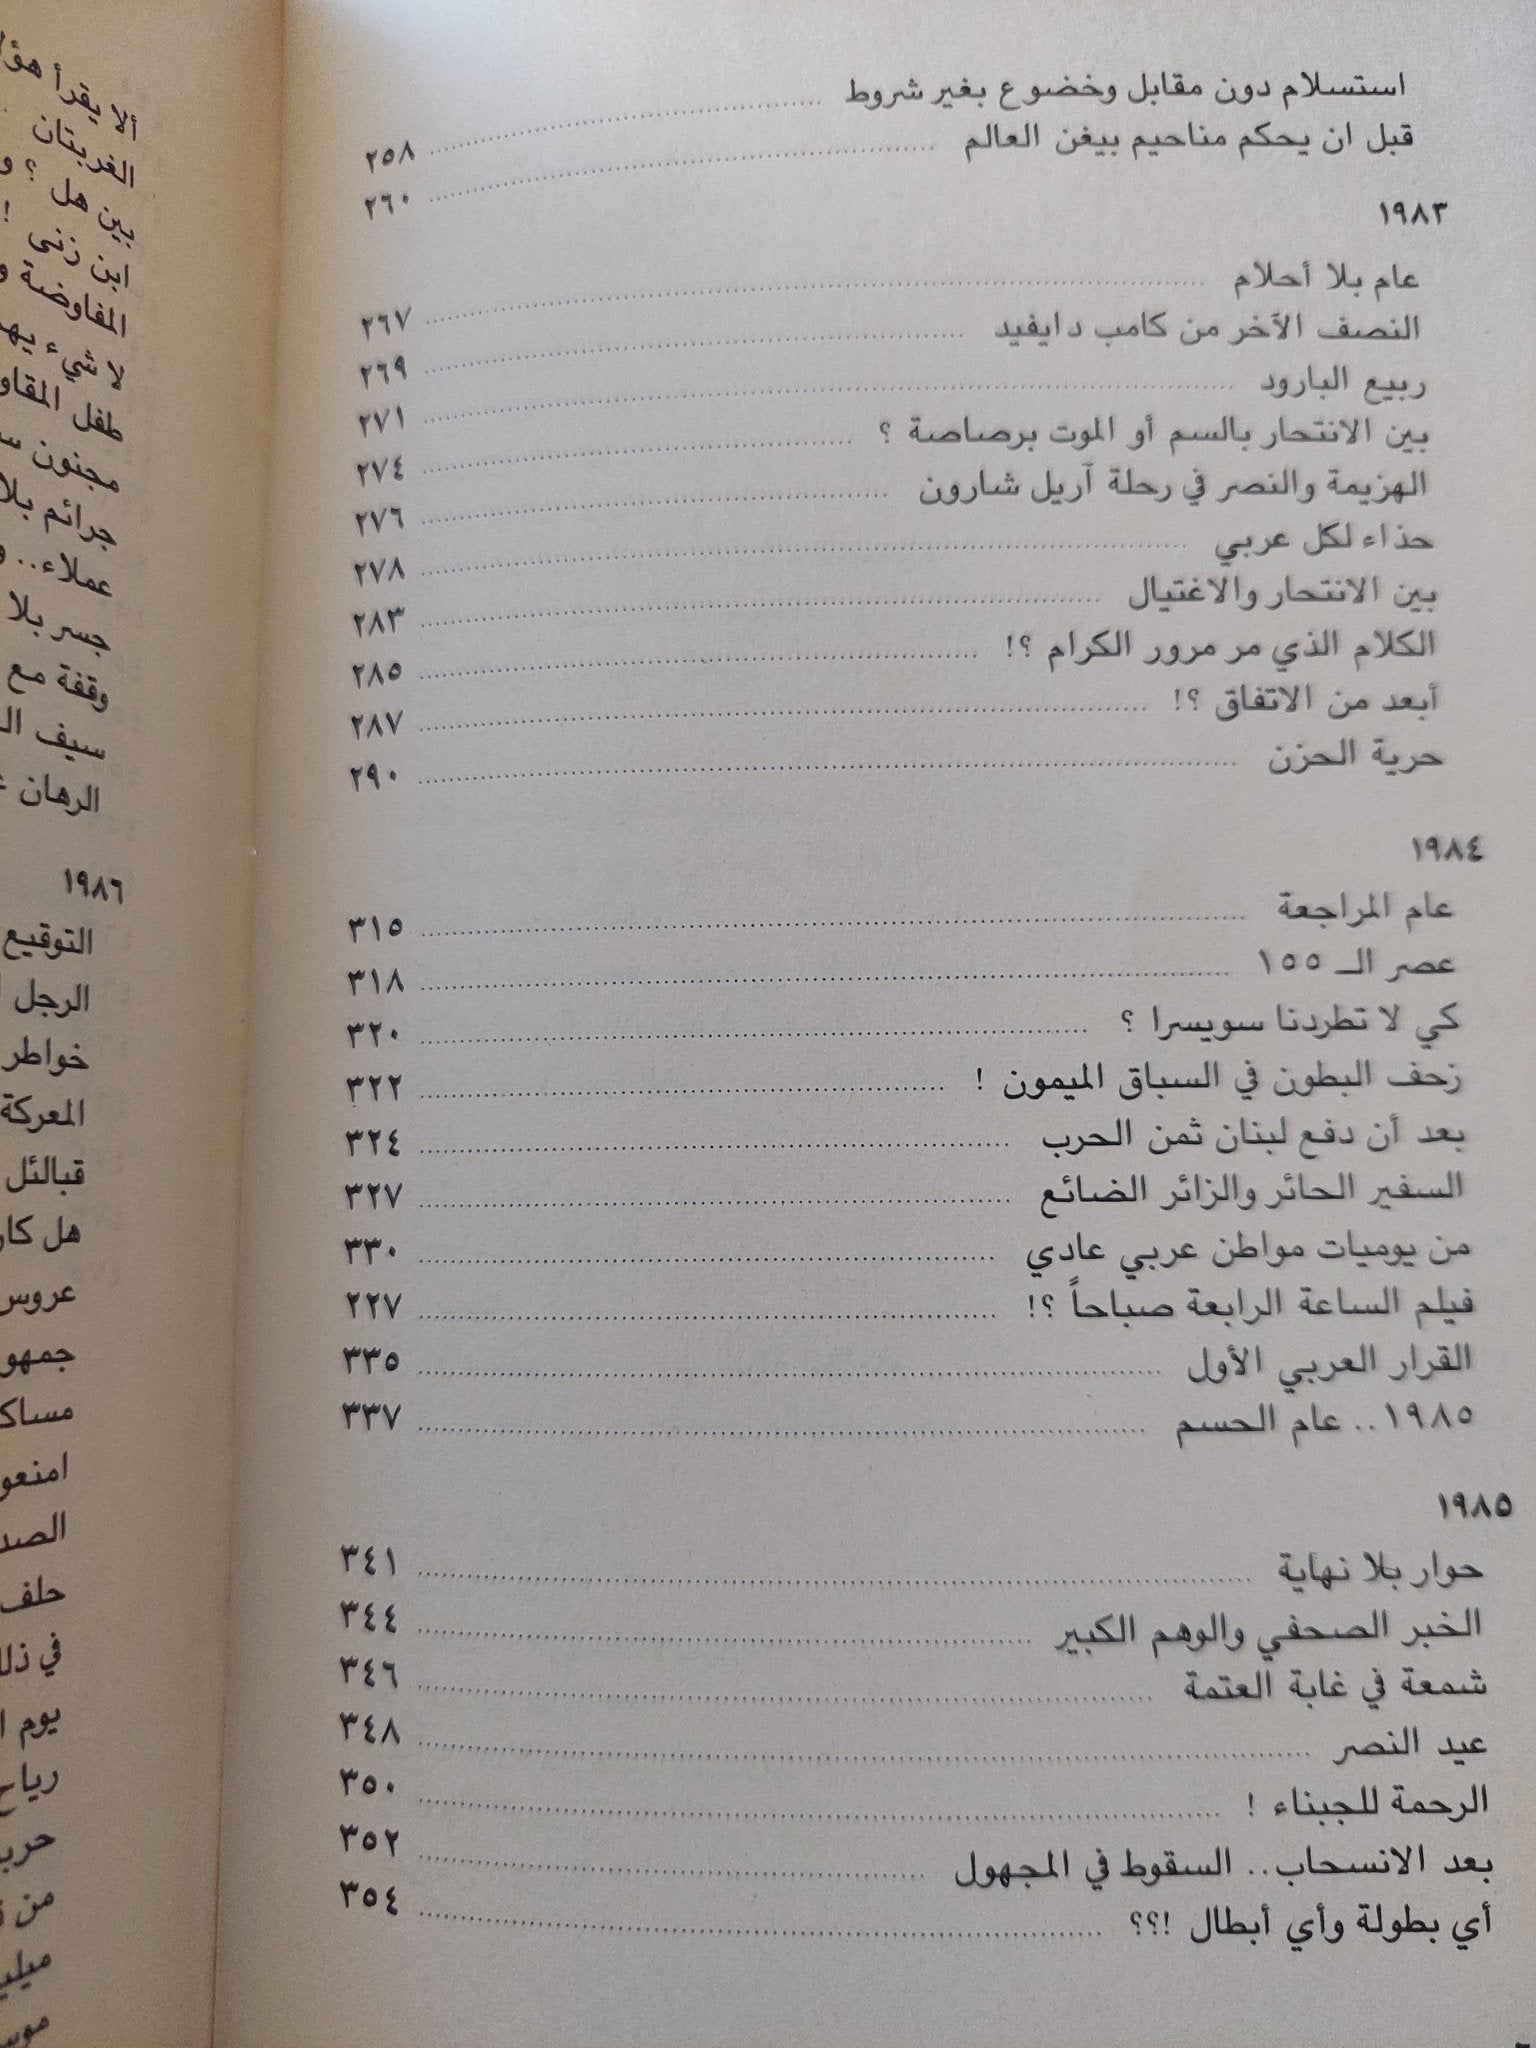 استسلام دون مقابل وخضوع بغير شروط ........ ٢٥٨
قبل ان يحكم مناحيم بيغن العالم ........ ٢٦٠
١٩٨٣
عام بلا أحلام ........ ٢٦٧
النصف الآخر من كامب دايفيد ........ ٢٦٩
ربيع البارود ........ ٢٧١
بين الانتحار بالسم أو الموت برصاصة ؟ ........ ٢٧٤
الهزيمة والنصر في رحلة آريل شارون ........ ٢٧٦
حذاء لكل عربي ........ ٢٧٨
بين الانتحار والاغتيال ........ ٢٨٣
الكلام الذي مر مرور الكرام ؟! ........ ٢٨٥
أبعد من الاتفاق ؟! ........ ٢٨٧
حرية الحزن ........ ٢٩٠
١٩٨٤
عام المراجعة ........ ٣١٥
عصر الـ ١٥٥ ........ ٣١٨
كي لا تطردنا سويسرا ؟ ........ ٣٢٠
زحف البطون في السباق الميمون ! ........ ٣٢٢
بعد أن دفع لبنان ثمن الحرب ........ ٣٢٤
السفير الحائر والزائر الضائع ........ ٣٢٧
من يوميات مواطن عربي عادي ........ ٣٣٠
فيلم الساعة الرابعة صباحاً ؟! ........ ٢٢٧
القرار العربي الأول ........ ٣٣٥
١٩٨٥.. عام الحسم ........ ٣٣٧
١٩٨٥
حوار بلا نهاية ........ ٣٤١
الخبر الصحفي والوهم الكبير ........ ٣٤٤
شمعة في غابة العتمة ........ ٣٤٦
عيد النصر ........ ٣٤٨
الرحمة للجبناء ! ........ ٣٥٠
بعد الانسحاب.. السقوط في المجهول ........ ٣٥٢
أي بطولة وأي أبطال !؟؟ ........ ٣٥٤
ألا يقرأ
الغربتان
بين هل ؟
ابن زنى !
المفاوضة
لا شيء
طفل
مجنون
جرائم بلا
عملاء..
جسر بلا
وقفة مع
سيف
الرهان
١٩٨٦
التوقيع
الرجل
خواطر
المعركة
قبالئل
هل
عروس
في
يوم
من